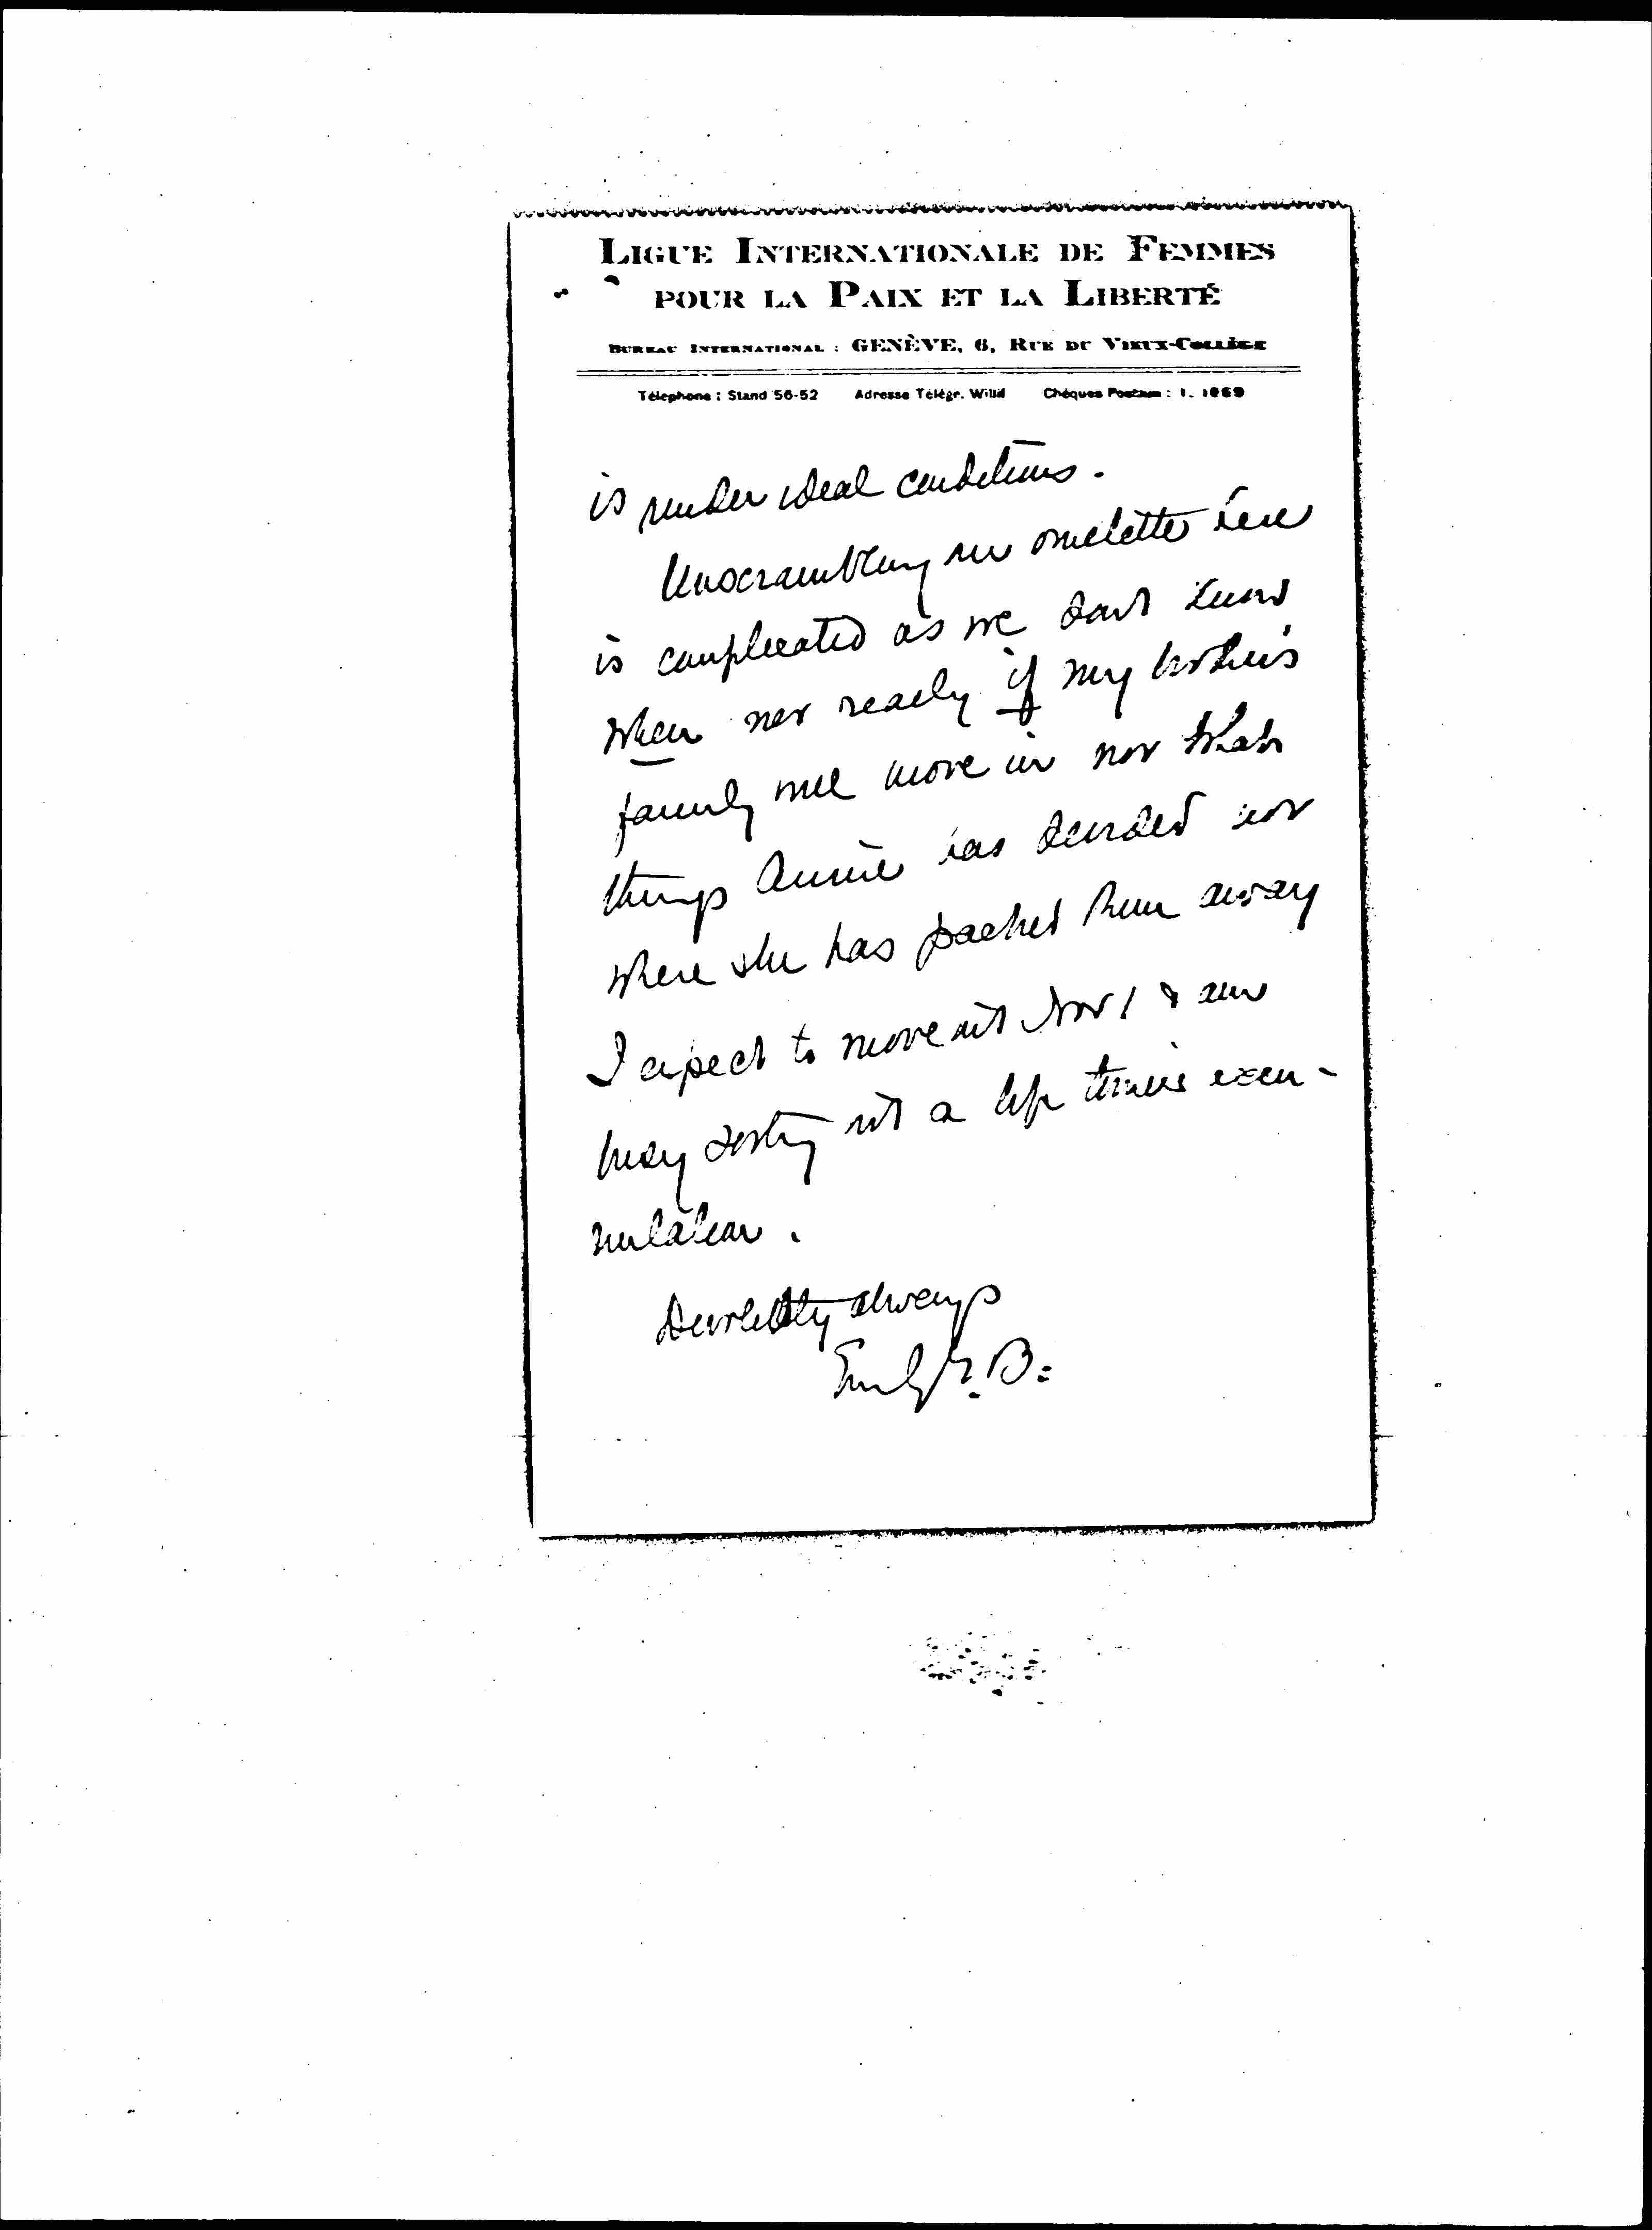 LIGUE INTERNATIONALE DE FEMMES
POUR LA PAIX ET LA LIBERTÉ
BUREAU INTERNATIONAL : GENÈVE, 6, RUE DU VIEUX-COLLÈGE
Téléphone : Stand 56-52 Adresse Télégr. Willif Chèques Postaux : I. 1869
is under ideal conditions.
Unscrambling an omelette here
is complicated as we don't know
when nor really if my brother's
family will move in nor what
things Annie has decided nor
where she has packed them away
I expect to move out Nov 1 & am
busy sorting out a life time's accu-
mulation.
Devotedly always
Emily G. B.